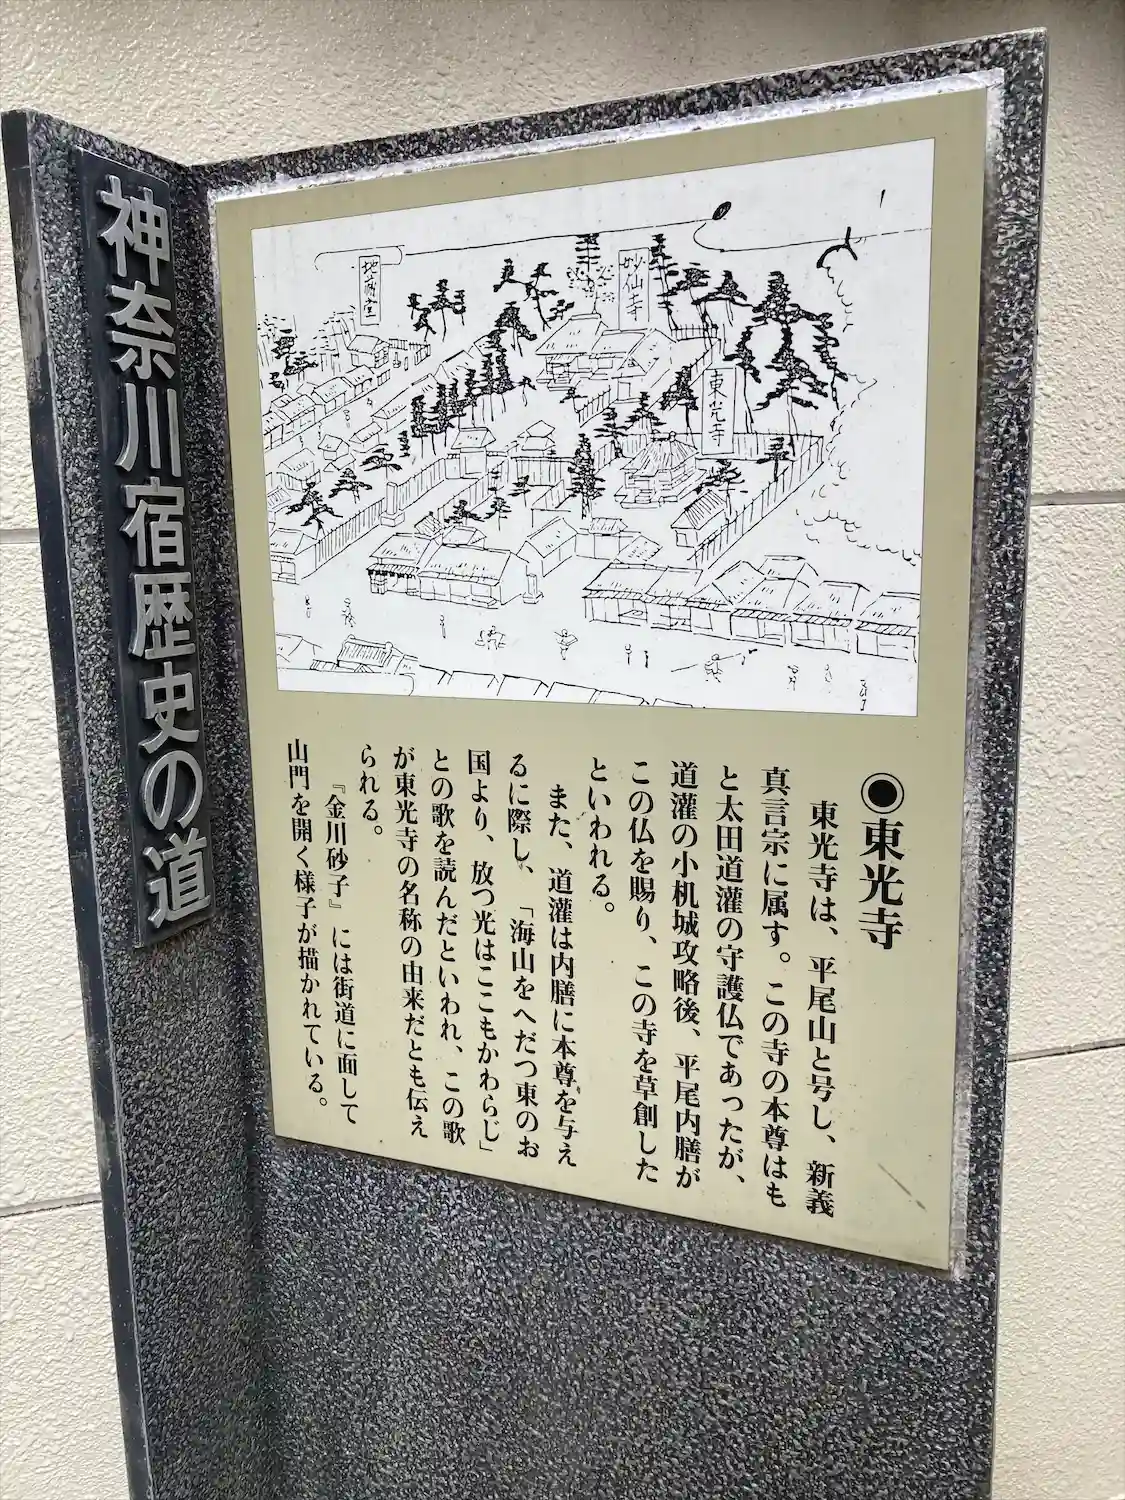 神奈川宿歴史の道
地蔵堂
妙仙寺
東光寺
◉東光寺
東光寺は、平尾山と号し、新義
真言宗に属す。この寺の本尊はも
と太田道灌の守護仏であったが、
道灌の小机城攻略後、平尾内膳が
この仏を賜り、この寺を草創した
といわれる。
また、道灌は内膳に本尊を与え
るに際し、「海山をへだつ東のお
国より、放つ光はここもかわらじ」
との歌を読んだといわれ、この歌
が東光寺の名称の由来だとも伝え
られる。
『金川砂子』には街道に面して
山門を開く様子が描かれている。